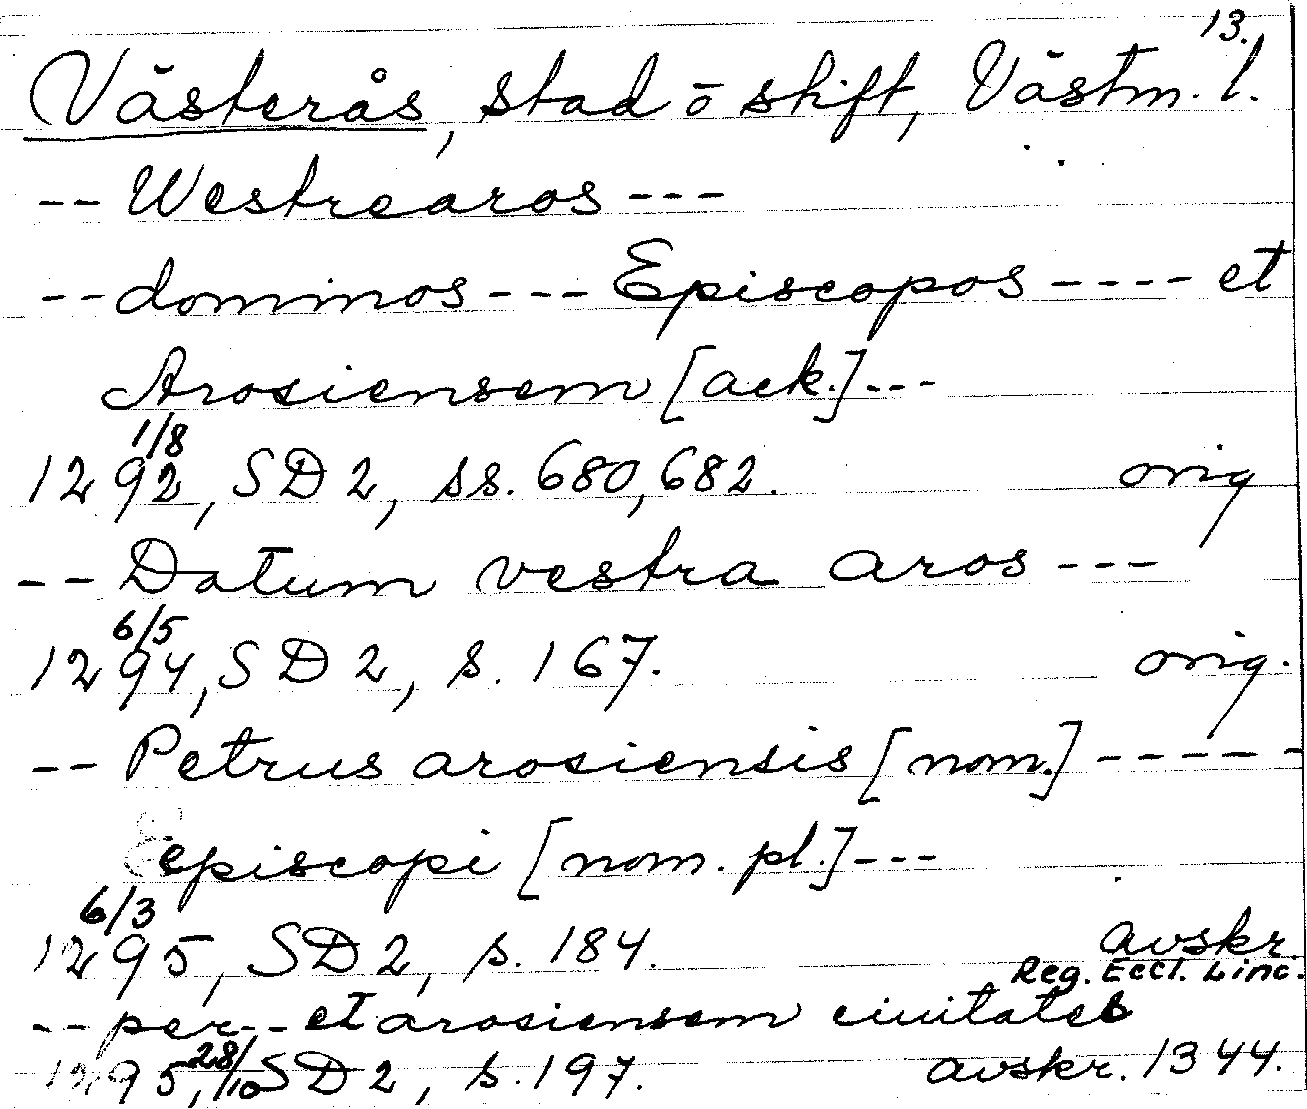 13.
Västerås, stad o skift, Västm. l.
-- Westrearos ---
-- dominos --- Episcopos ---- et
Arosiensem [ack.] ---
1292 1/8, SD 2, ss. 680, 682. orig
-- Datum vestra aros ---
1294 6/5, SD 2, s. 167. orig.
-- Petrus arosiensis [nom.] -----
episcopi [nom. pl.] ---
1295 6/3, SD 2, s. 184. avskr.
Reg. Eccl. Linc.
-- per -- et arosiensem ciuitates
1295, 28/10 SD 2, s. 197. avskr. 1344.